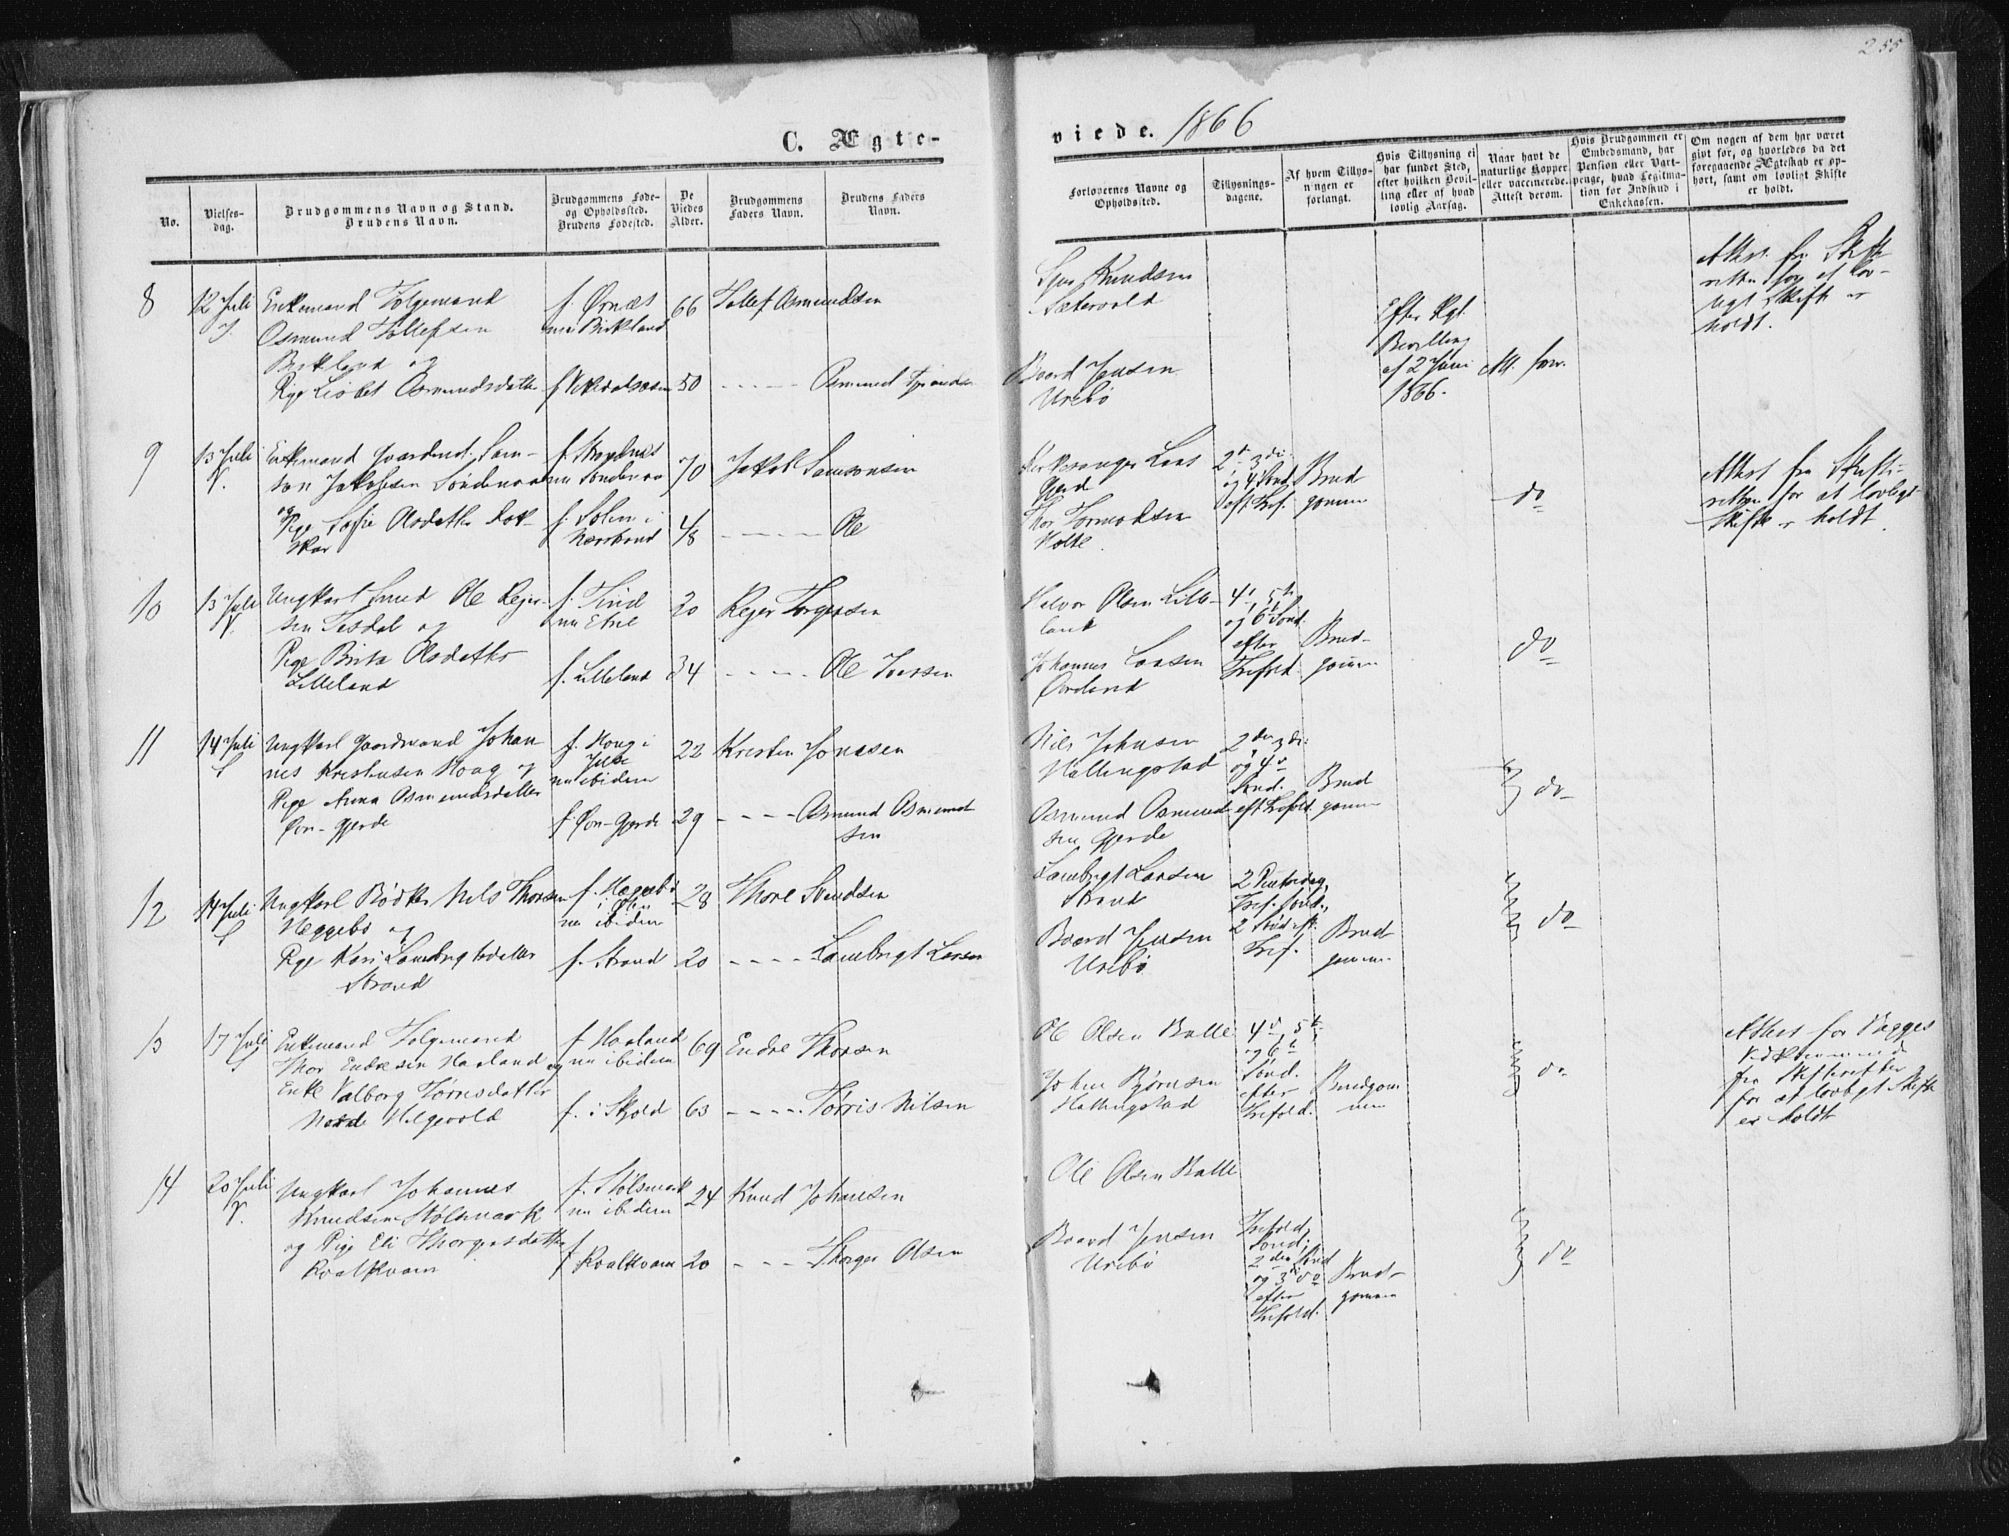 255
C. Ægte-
viede. 1866
No.
Vielses-
dag.
Brudgommens Navn og Stand.
Brudens Navn.
Brudgommens Føde-
og Opholdssted.
Brudens Fødested.
De
Viedes
Alder.
Brudgommens
Faders Navn.
Brudens Faders
Navn.
Forlovernes Navne og
Opholdssted.
Tillysnings-
dagene.
Af hvem Tillys-
ningen er
forlangt.
Hvis Tillysning ei
har fundet Sted,
efter hvilken Bevil-
ling eller af hvad
lovlig Aarsag.
Naar havt de
naturlige Kopper
eller vaccinerede.
Attest derom.
Hvis Brudgommen er
Embedsmand, har
Pension eller Vart-
penge, hvad Legitima-
tion for Indskud i
Enkekassen.
Om nogen af dem har været
gift før, og hvorledes da det
foregaaende Ægteskab er op-
hørt, samt om lovligt Skifte
er holdt.
8
12 Juli
Enkemand Folgemand
Osmund Tollefsen
Birkland og
Pige Lisbet Osmundsdatter
f. Ørnæs
nu Birkland
66
50
Tollef Osmundsen
Osmund
Knudsen
Sætervold
Baard Jensen
Urebø
Efter Kgl.
Bevilling
af 2 Juni
1866.
Att. forev.
Attest fra Skifte
retten for at lov-
ligt Skifte er
holdt.
9
13 Juli
V.
Enkemand Gaardmd. Sam-
son Jakobsen Søndenaa
og
Pige Sofie Olsdatter
nu Søndenaa
f. Solem i
Nærstrand
70
48
Jakob Samsonsen
Ole
Kirkesanger Lars
Gjerde
Thor Tormodsen
Holte.
2den 3die
og 4 Sønd.
eft. Tref.
Brud
gommen
do
Attest fra Skifte-
retten for at lovligt
Skifte er holdt.
10
13 Juli
V.
Ungkarl Smed Ole Rejer-
sen Tesdal og
Pige Brita Olsdatter
Lilleland
nu Etne
f. Lilleland
20
34
Rejer Torgersen
Ole Iversen
Halvor Olsen Lille-
land
Johannes Larsen
4de, 5te
og 6te Sønd.
efter
Trefold.
Brud-
gommen
do
11
14 Juli
L
Ungkarl Gaardmand Johan
nes Kristensen Houg og
Pige Anna Osmundsdatter
Øvn-Gjerde
f. Houg i
Jelse
nu ibidem
f. Øvn-Gjerde
22
29
Kristen Jonasen
Osmund Osmund
sen
Nils Johnsen
Hallingstad
Osmund Osmund-
sen Gjerde
2den 3die
og 4de
Sønd.
eft. Trefold.
Brud
gommen
do
12
14 Juli
L
Ungkarl Bødker Nils Thorsen
Heggebø og
Pige Kari Lambrigtsdatter
Strand
f. Heggebø
nu ibidem
f. Strand
28
20
Thore Svendsen
Lambrigt Larsen
Lambrigt Larsen
Strand
Baard Jensen
Urebø
2 Pintsedag,
Tref. Sønd.,
2 Sønd. eft.
Tref.
Brud
gommen
do
13
17 Juli
Enkemand Folgemand
Thor Endresen Haaland og
Enke Valborg Tørrisdatter
Helgevold
f. Haaland
nu ibidem
f. i Skjold
69
63
Endre Thorsen
Tørris Nilsen
Ole Olsen Kalle
John Bjørnsen
Hallingstad
4de, 5te
og 6te
Sønd.
efter
Trefold.
Brudgom
men
do
Attest for Begges
Vedkommende
fra Skifteretten
for at lovligt Skifte
er holdt
14
20 Juli
V.
Ungkarl Johannes
Knudsen Stølsmark
og Pige Eli Thorgersdatter
Kvalkvam
f. Stølsmark
nu ibidem
f.
Kvalkvam
24
20
Knud Johansen
Thorger Olsen
Ole Olsen Kalle
Baard Jensen
Urebø
Trefold.
Sønd.,
2den Sønd
og 3die do
efter
Trefold.
Brud-
gommen
do